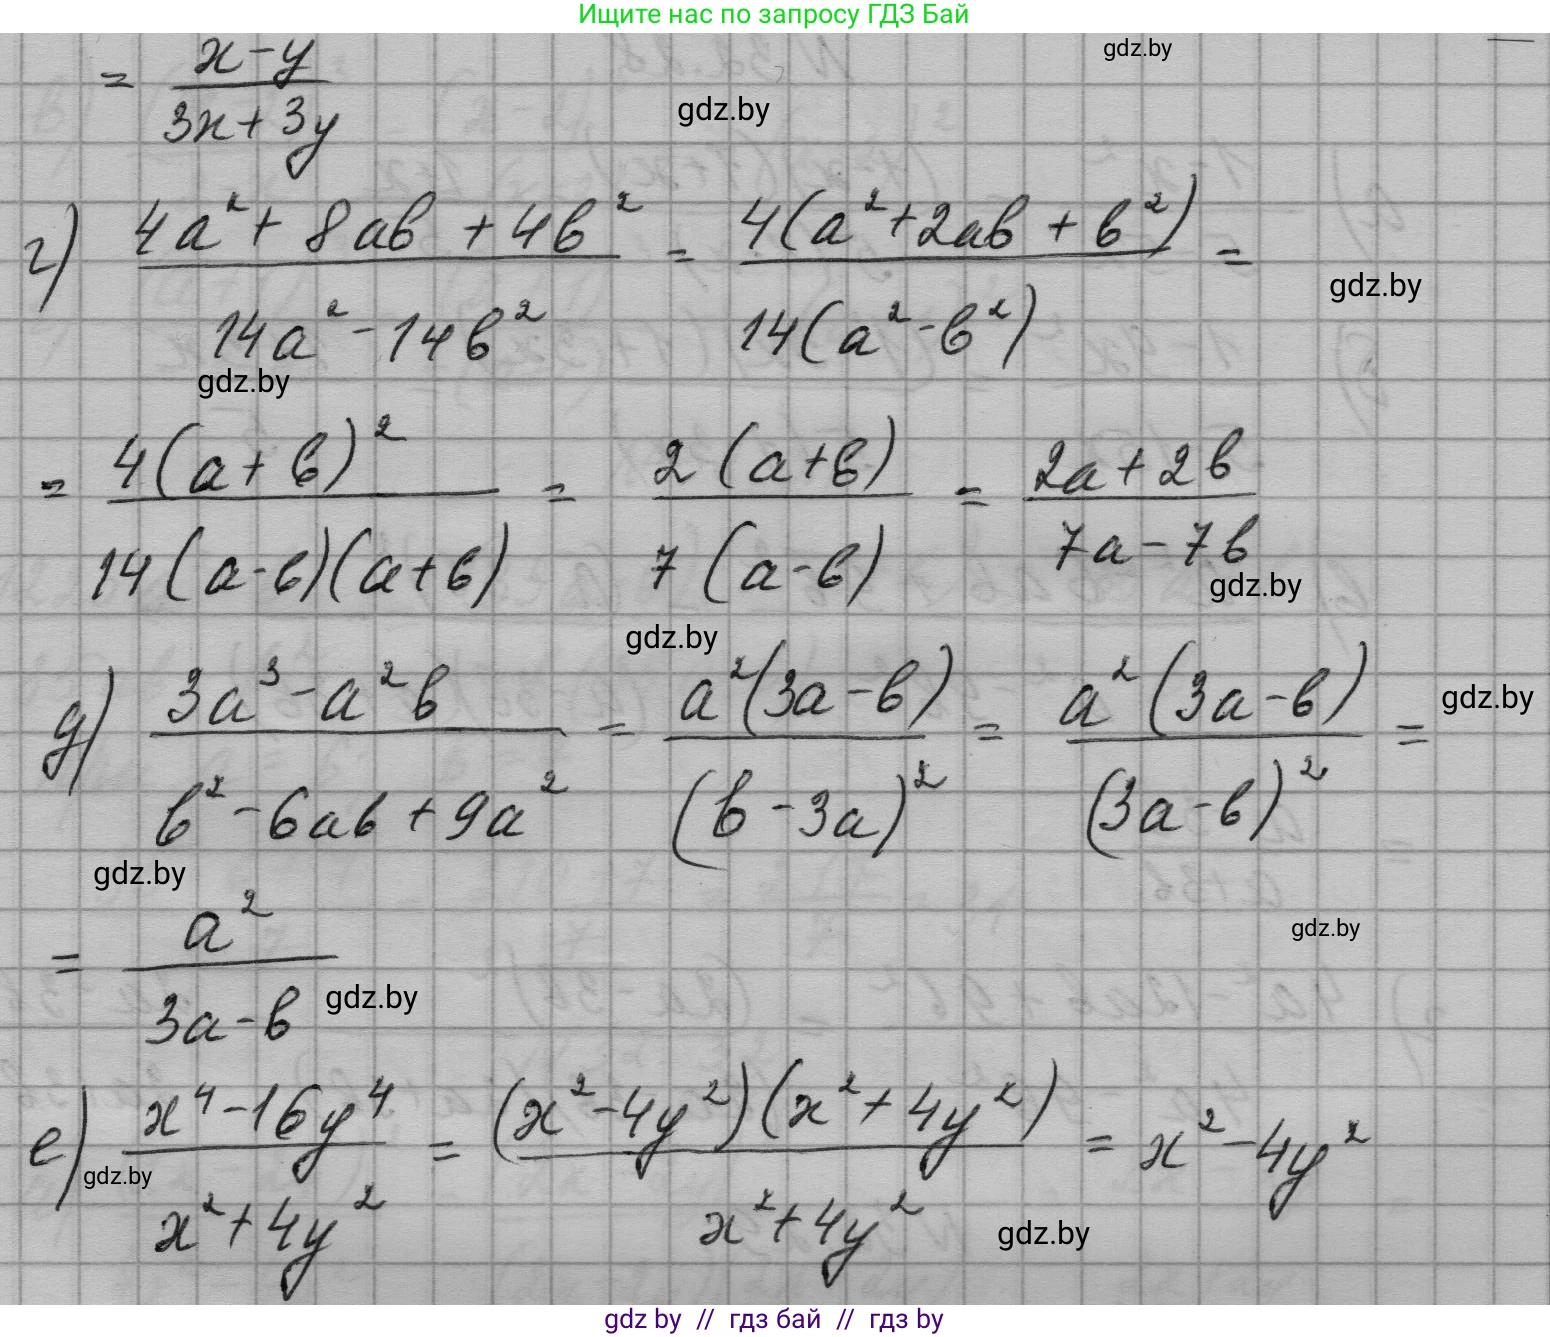 Ищите нас по запросу ГДЗ Бай
= (x-y)/(3x+3y)
gdz.by
gdz.by
г) (4a²+8ab+4b²)/(14a²-14b²) = 4(a²+2ab+b²)/14(a²-b²) =
gdz.by
gdz.by
= 4(a+b)²/14(a-b)(a+b) = 2(a+b)/7(a-b) = (2a+2b)/(7a-7b)
gdz.by
gdz.by
д) (3a³-a²b)/(b²-6ab+9a²) = a²(3a-b)/(b-3a)² = a²(3a-b)/(3a-b)² =
gdz.by
gdz.by
= a²/(3a-b)
gdz.by
gdz.by
е) (x⁴-16y⁴)/(x²+4y²) = (x²-4y²)(x²+4y²)/(x²+4y²) = x²-4y²
gdz.by
gdz.by
gdz by // гдз бай // гдз by